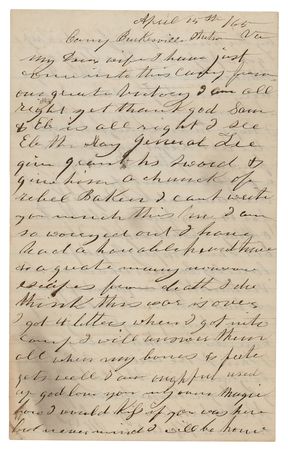 April 15th /65
Camp Burkesville Station Va
My Dear wife I have just
come into this Camp from
our greate victory I am all
right yet thank god Sam
& Eb is all right I see
Eb the day General Lee
give grant his sword &
give him a chunck of
rebel Bakon I cant write
you much this time I am
so worryed out I have
had a horable hard time
so a greate many narrow
escapes from death I do
think this war is over
I got 4 letters when I got into
Camp I will answer them
all when my bones & feete
gets well I am used
up god love you my own Magie
how I would Kiss if you was here
but never mind I will be home